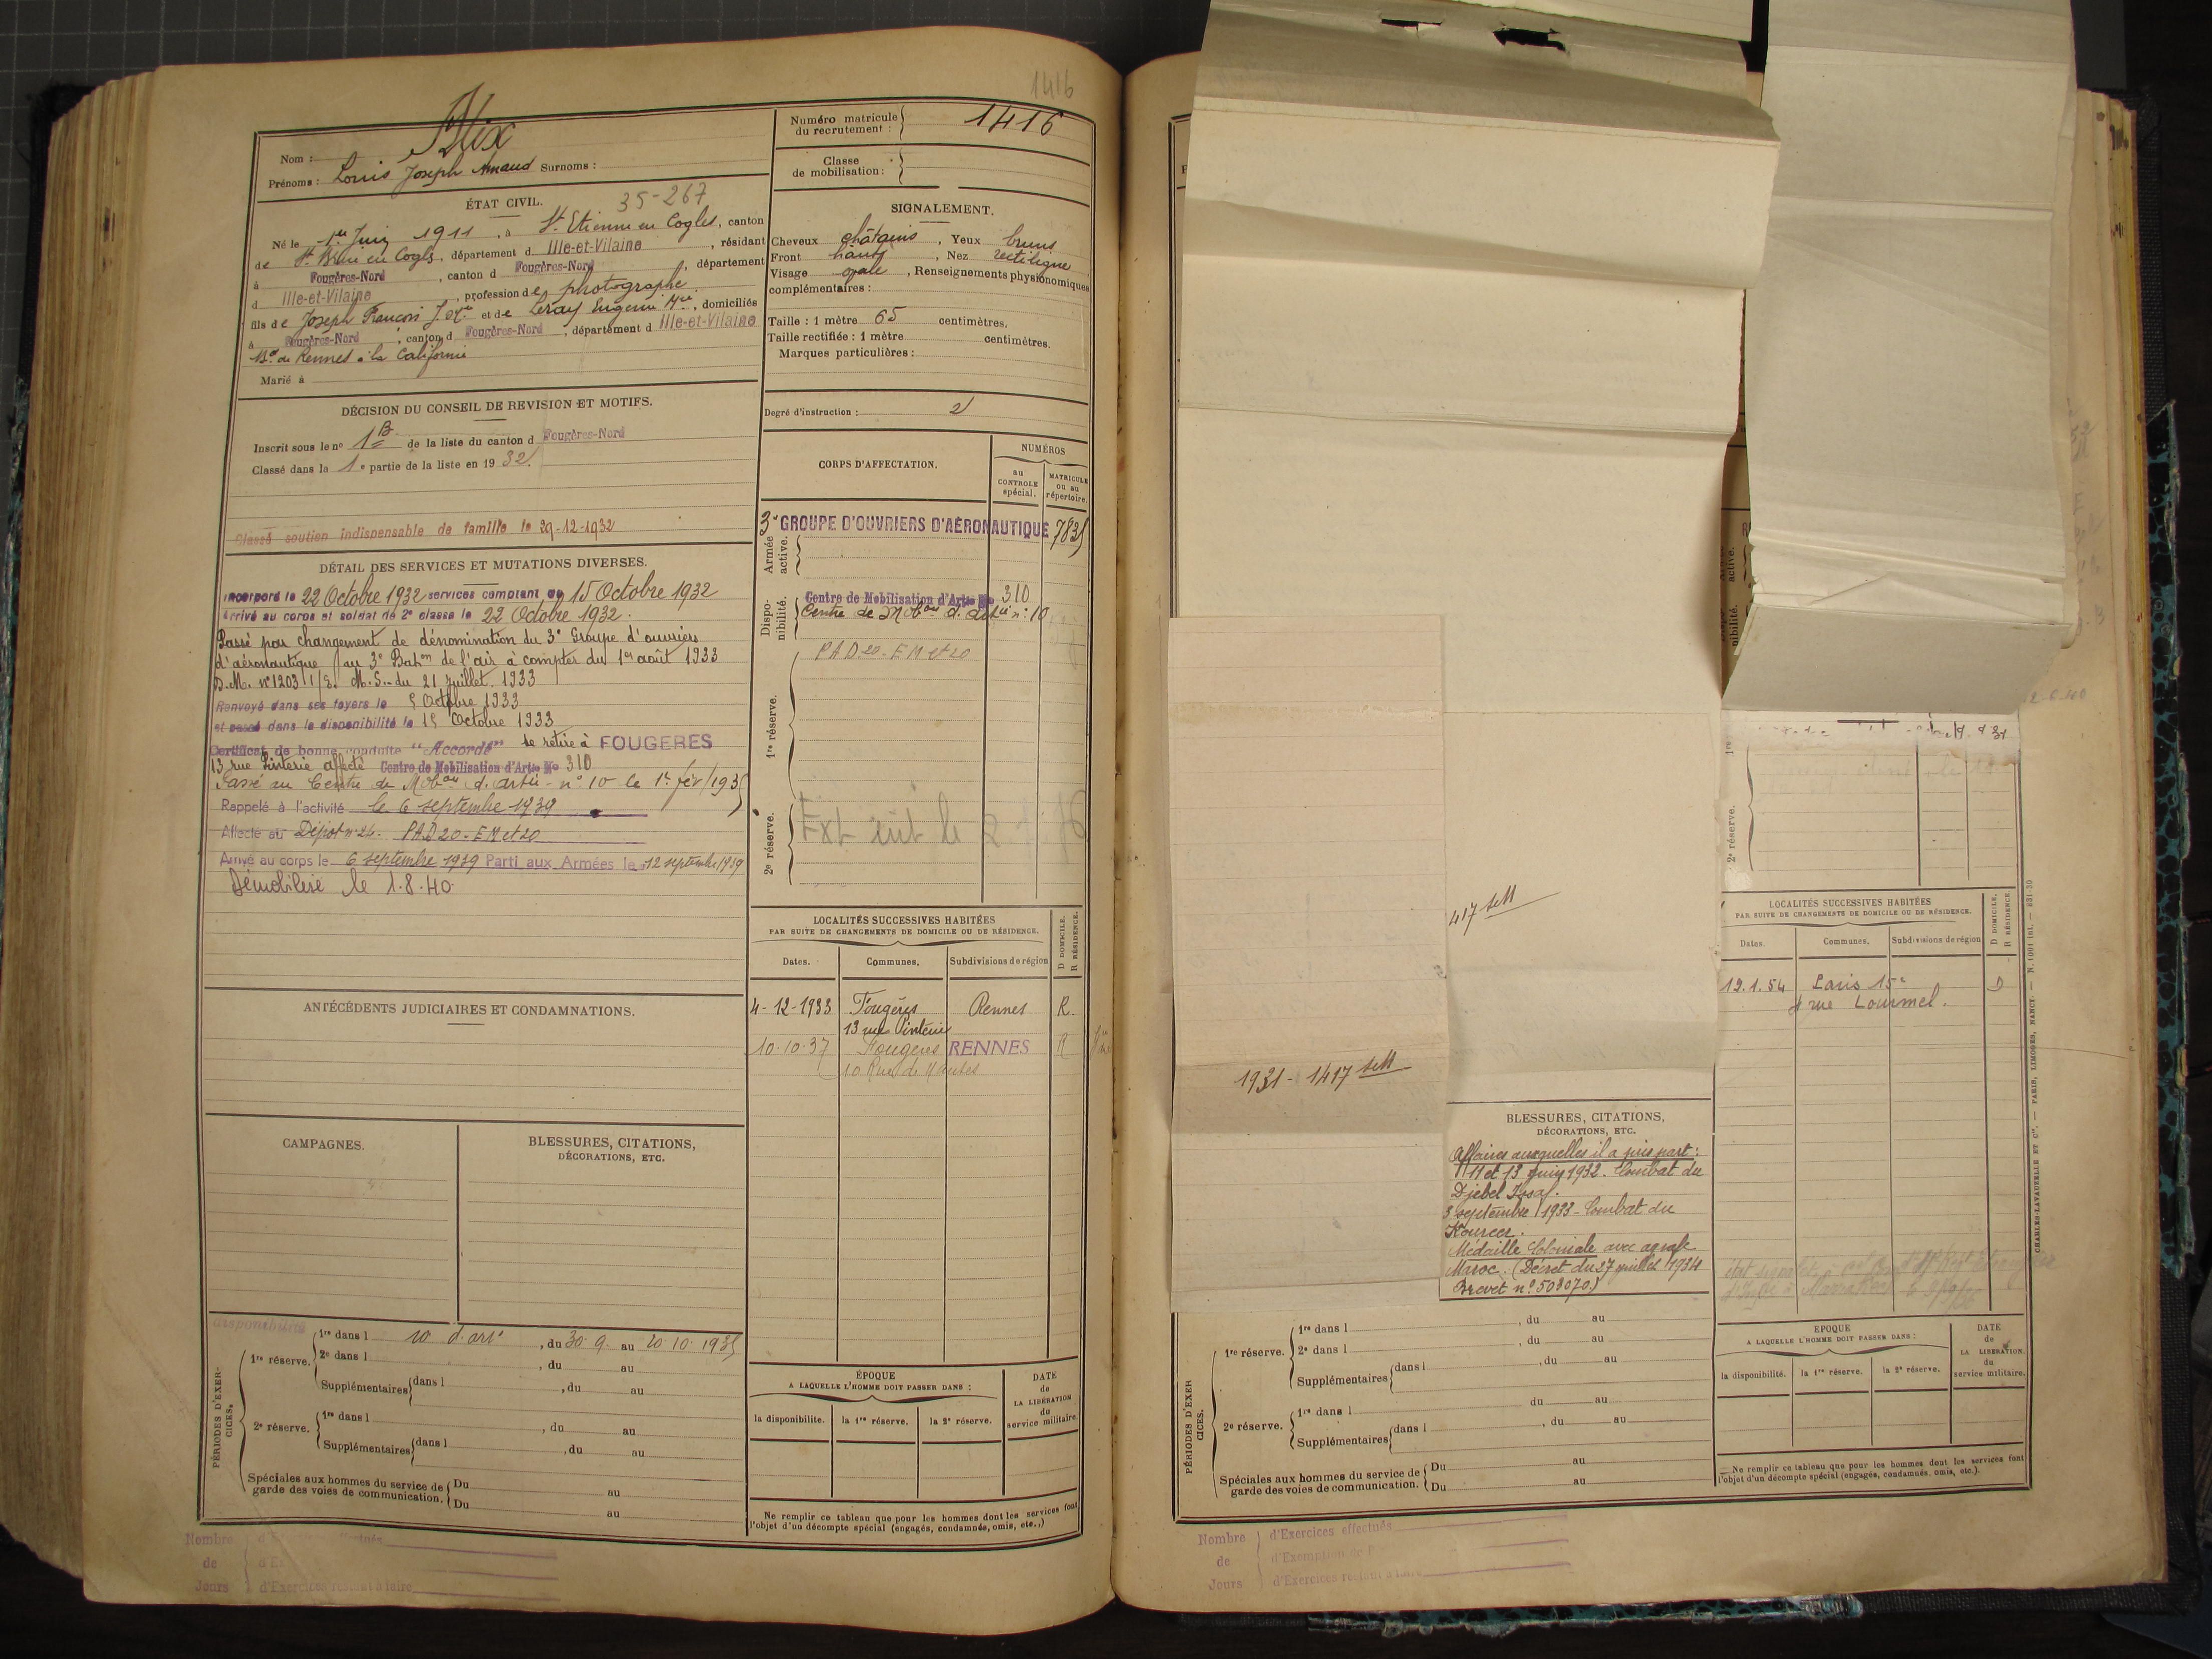 1416
Nom : Alix
Prénoms : Louis Joseph Amand Surnoms :
Numéro matricule du recrutement : 1416
Classe de mobilisation :
ÉTAT CIVIL. 35-267
Né le 1er Juin 1911, à St. Etienne en Cogles, canton
de St. Brice en Cogles, département d Ille-et-Vilaine, résidant
à Fougères-Nord, canton d Fougères-Nord, département
d Ille-et-Vilaine, profession de photographe
fils de Joseph François J. et de Leray Eugénie Mie, domiciliés
à Fougères-Nord, canton d Fougères-Nord, département d Ille-et-Vilaine
Bd de Rennes à la Californie
Marié à
SIGNALEMENT.
Cheveux châtains, Yeux bruns
Front haut, Nez rectiligne
Visage ovale, Renseignements physionomiques
complémentaires :
Taille : 1 mètre 65 centimètres.
Taille rectifiée : 1 mètre centimètres.
Marques particulières :
Degré d'instruction : 2
DÉCISION DU CONSEIL DE REVISION ET MOTIFS.
Inscrit sous le no 1 B de la liste du canton d Fougères-Nord
Classé dans la 1e partie de la liste en 1932.
Classé soutien indispensable de famille le 29-12-1932
DÉTAIL DES SERVICES ET MUTATIONS DIVERSES.
Incorporé le 22 Octobre 1932 services comptant du 15 Octobre 1932
Arrivé au corps et soldat de 2e classe le 22 Octobre 1932.
Passé par changement de dénomination du 3e Groupe d'ouvriers
d'aéronautique au 3e Baton de l'air à compter du 1er août 1933
D.M. no 1203 1/8. M.S. du 21 juillet 1933
Renvoyé dans ses foyers le 5 Octobre 1933
et passé dans la disponibilité le 15 Octobre 1933
Certificat de bonne conduite "Accordé" se retire à FOUGERES
13 rue Pinterie affecté Centre de Mobilisation d'Artie No 310
Passé au Centre de Mobon d'artie no 10 le 1er fév 1935
Rappelé à l'activité le 6 septembre 1939
Affecté au Dépôt no 24. PAD 20 - EM et 20
Arrivé au corps le 6 septembre 1939 Parti aux Armées le 12 septembre 1939
Démobilisé le 1.8.40
CORPS D'AFFECTATION.
NUMÉROS
au CONTROLE spécial.
MATRICULE ou au répertoire.
Armée active.
3e GROUPE D'OUVRIERS D'AÉRONAUTIQUE 7835
Disponibilité.
Centre de Mobilisation d'Artie No 310
Centre de Mobon d. artie no 10
1re réserve.
PAD. 20 - EM et 20
2e réserve.
Ext
LOCALITÉS SUCCESSIVES HABITÉES
PAR SUITE DE CHANGEMENTS DE DOMICILE OU DE RÉSIDENCE.
D DOMICILE. R RÉSIDENCE.
Dates. Communes. Subdivisions de région
4-12-1933 Fougères Rennes R.
13 rue Pinterie
10.10.37 Fougères RENNES R
10 Rue de Nantes
ANTÉCÉDENTS JUDICIAIRES ET CONDAMNATIONS.
CAMPAGNES.
BLESSURES, CITATIONS,
DÉCORATIONS, ETC.
PÉRIODES D'EXERCICES.
disponibilité
1re réserve.
1re dans l 10 d'arie, du 30.9. au 20.10.1935
2e dans l , du au
Supplémentaires dans l , du au
2e réserve.
1re dans l , du au
Supplémentaires dans l , du au
Spéciales aux hommes du service de garde des voies de communication.
Du au
Du au
ÉPOQUE
A LAQUELLE L'HOMME DOIT PASSER DANS :
la disponibilité. la 1re réserve. la 2e réserve.
DATE de LA LIBÉRATION du service militaire.
Ne remplir ce tableau que pour les hommes dont les services font
l'objet d'un décompte spécial (engagés, condamnés, omis, etc.,)
Nombre de Jours
d'Exercices restant à faire
417 bis
1931 - 1417 bis
BLESSURES, CITATIONS,
DÉCORATIONS, ETC.
Affaires auxquelles il a pris part :
11 et 13 juin 1932. Combat du
Djebel
3 septembre 1933 - Combat du
Kourcer.
Médaille Coloniale avec agrafe
Maroc. (Décret du 27 juillet 1934
Brevet no 508070.)
2e réserve.
LOCALITÉS SUCCESSIVES HABITÉES
PAR SUITE DE CHANGEMENTS DE DOMICILE OU DE RÉSIDENCE.
D DOMICILE. R RÉSIDENCE.
Dates. Communes. Subdivisions de région
19.1.54 Paris 15e D
rue Lourmel.
CHARLES-LAVAUZELLE ET Cie. — PARIS, LIMOGES, NANCY.
PÉRIODES D'EXERCICES.
1re réserve.
1re dans l , du au
2e dans l , du au
Supplémentaires dans l , du au
2e réserve.
1re dans l du au
Supplémentaires dans l , du au
Spéciales aux hommes du service de garde des voies de communication.
Du au
Du au
EPOQUE
A LAQUELLE L'HOMME DOIT PASSER DANS :
la disponibilité. la 1re réserve. la 2e réserve.
DATE de LA LIBERATION du service militaire.
Ne remplir ce tableau que pour les hommes dont les services font
l'objet d'un décompte spécial (engagés, condamnés, omis, etc.).
Nombre de Jours
d'Exercices effectués
d'Exemption
d'Exercices restant à faire